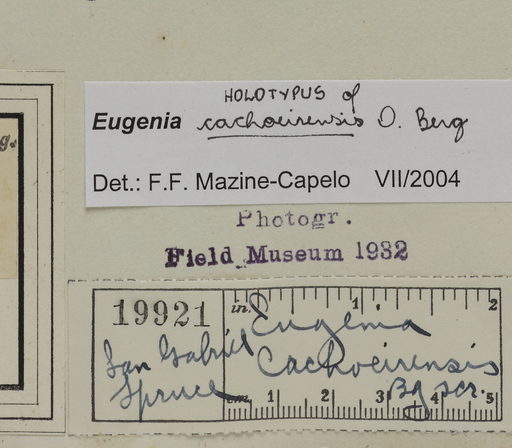 g.
HOLOTYPUS of
Eugenia cachoeirensis O. Berg
Det.: F.F. Mazine-Capelo VII/2004
Photogr.
Field Museum 1932
19921 in. 1 2
Eugenia
San Gabriel Cachoeirensis
Spruce Bg scr.
cm. 1 2 3 4 5